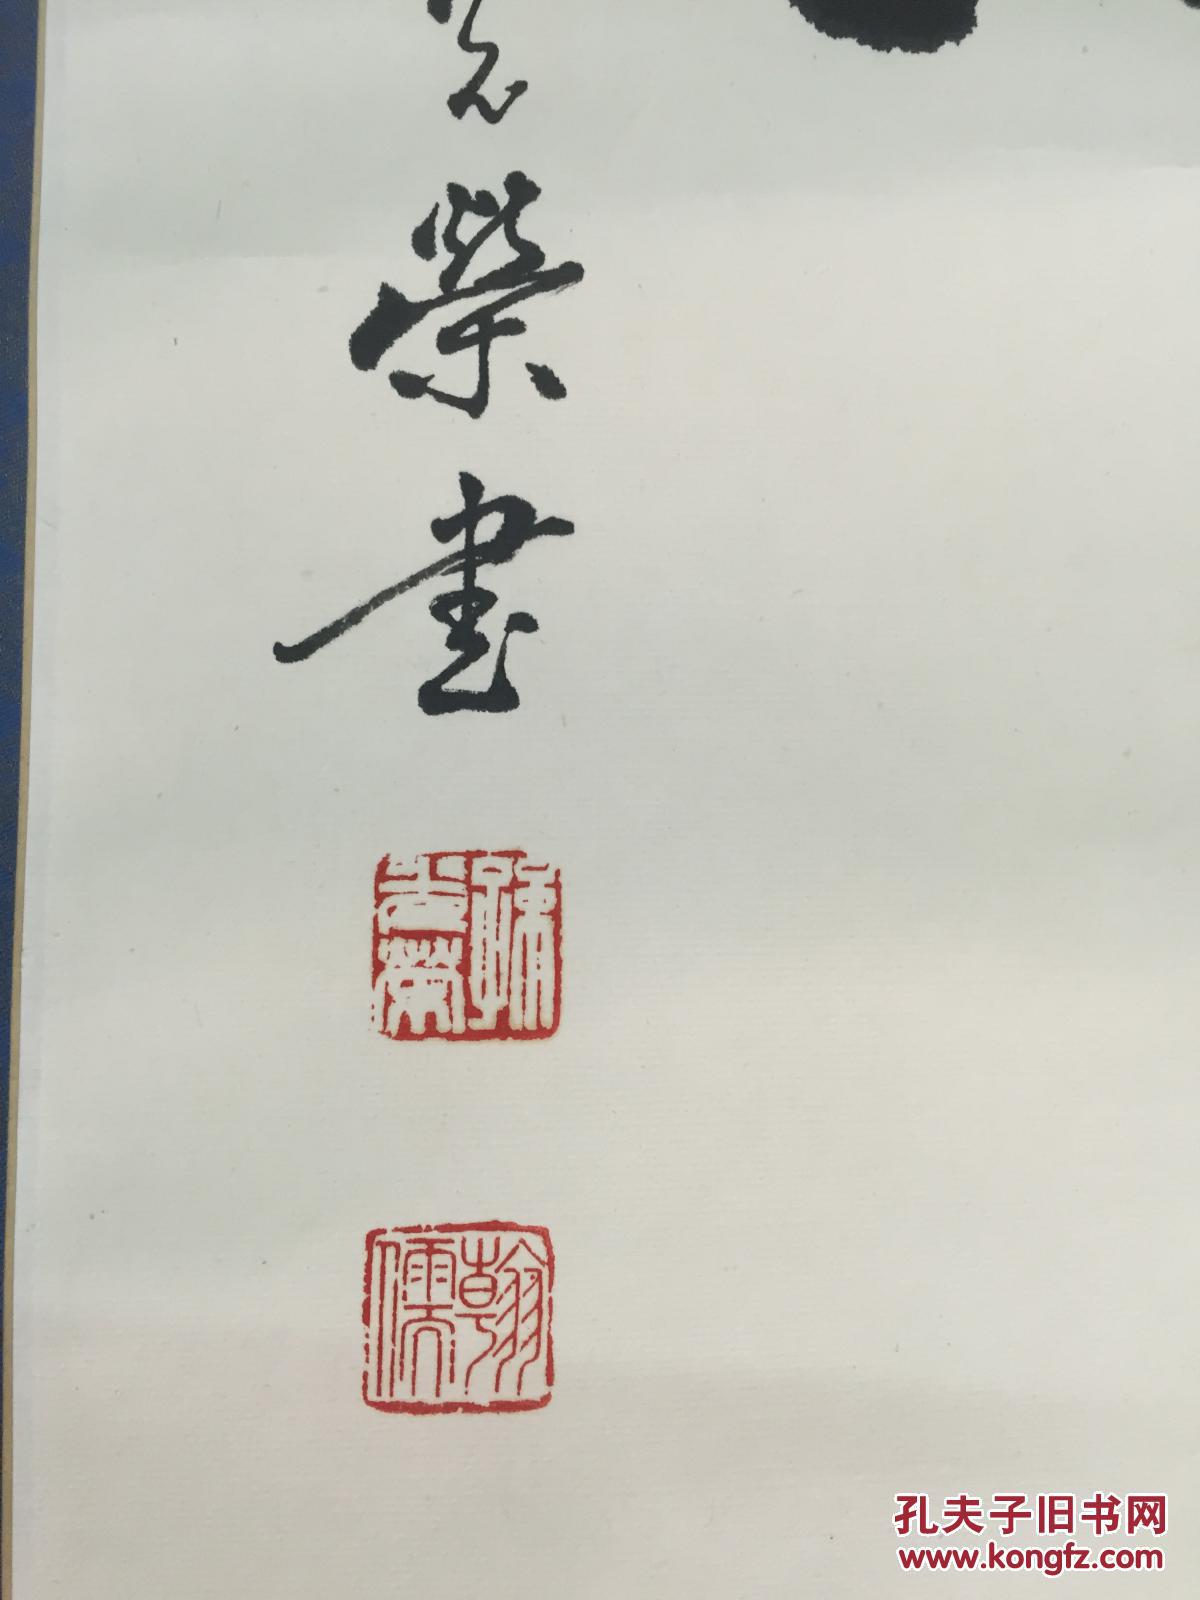 榮書
孫
榮
翰
儒
孔夫子旧书网
www.kongfz.com